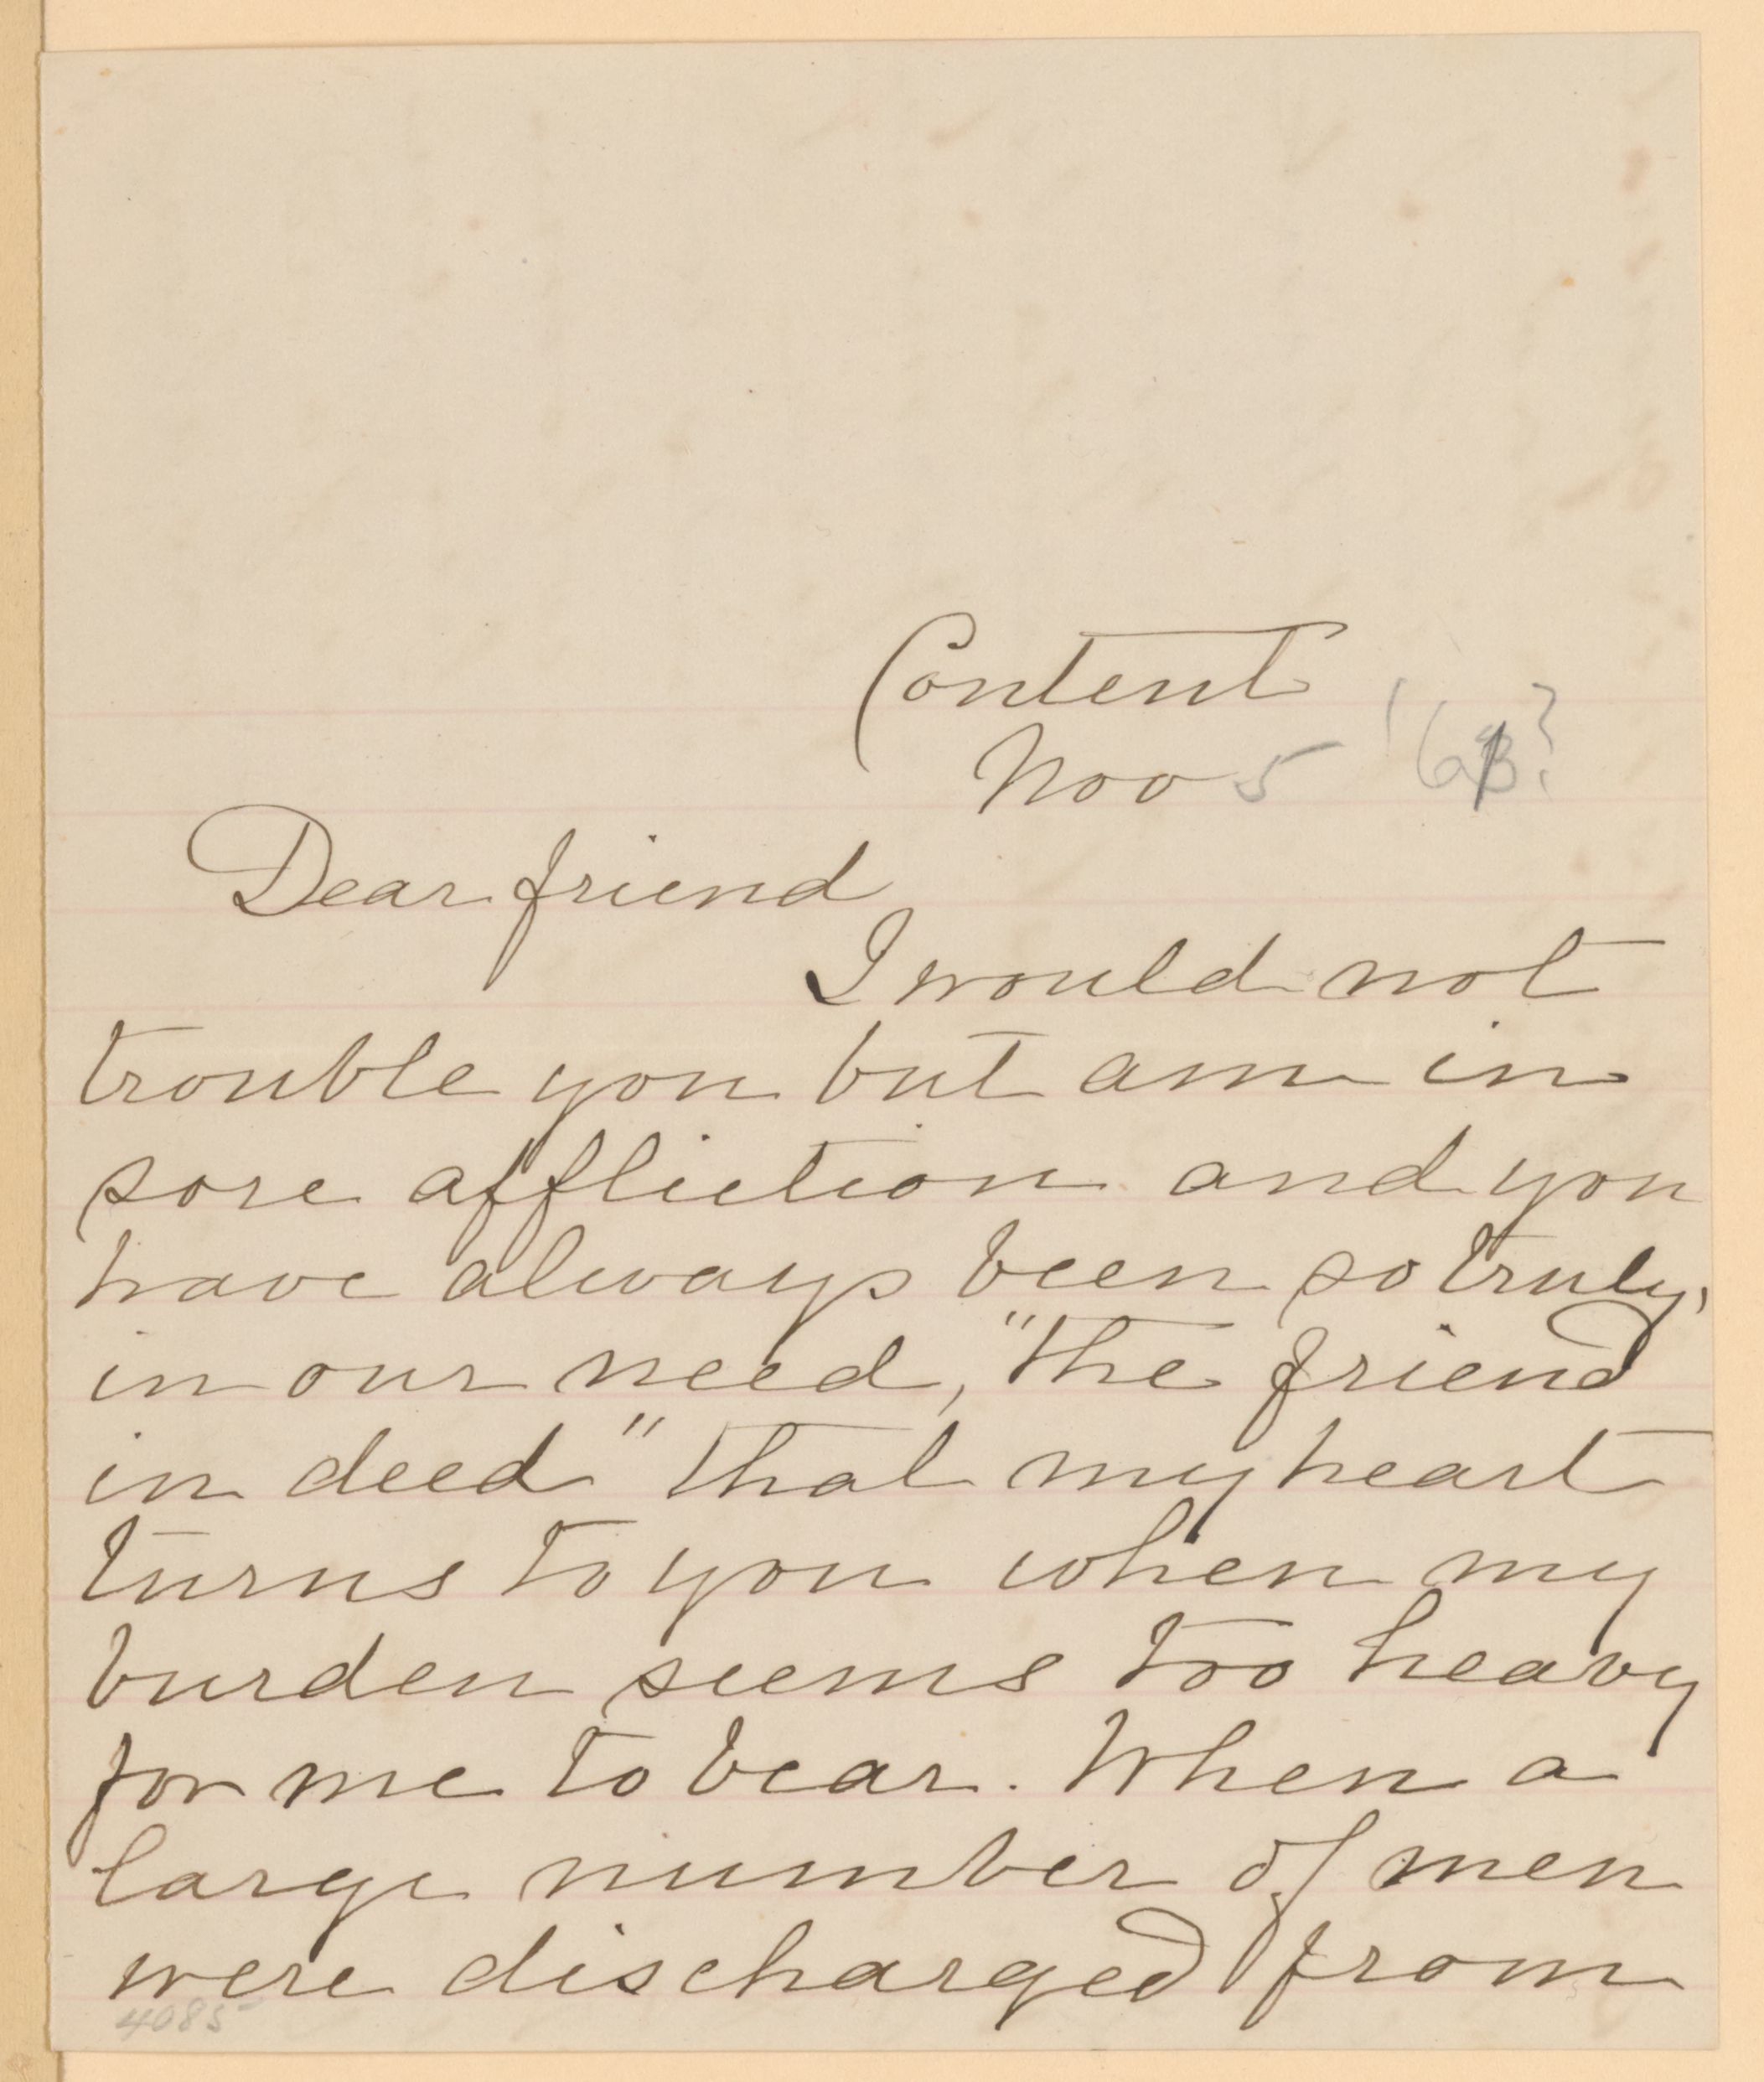 Content
Nov 5 '63?
Dear friend
I would not
trouble you but am in
sore affliction and you
have always been so truly,
in our need, "the friend
in deed" that my heart
turns to you when my
burden seems too heavy
for me to bear. When a
large number of men
were discharged from
4085